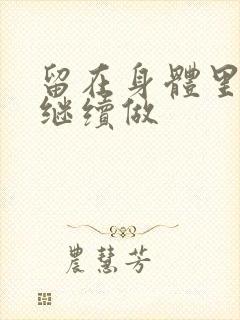 留在身體里
继續做
農慧芳